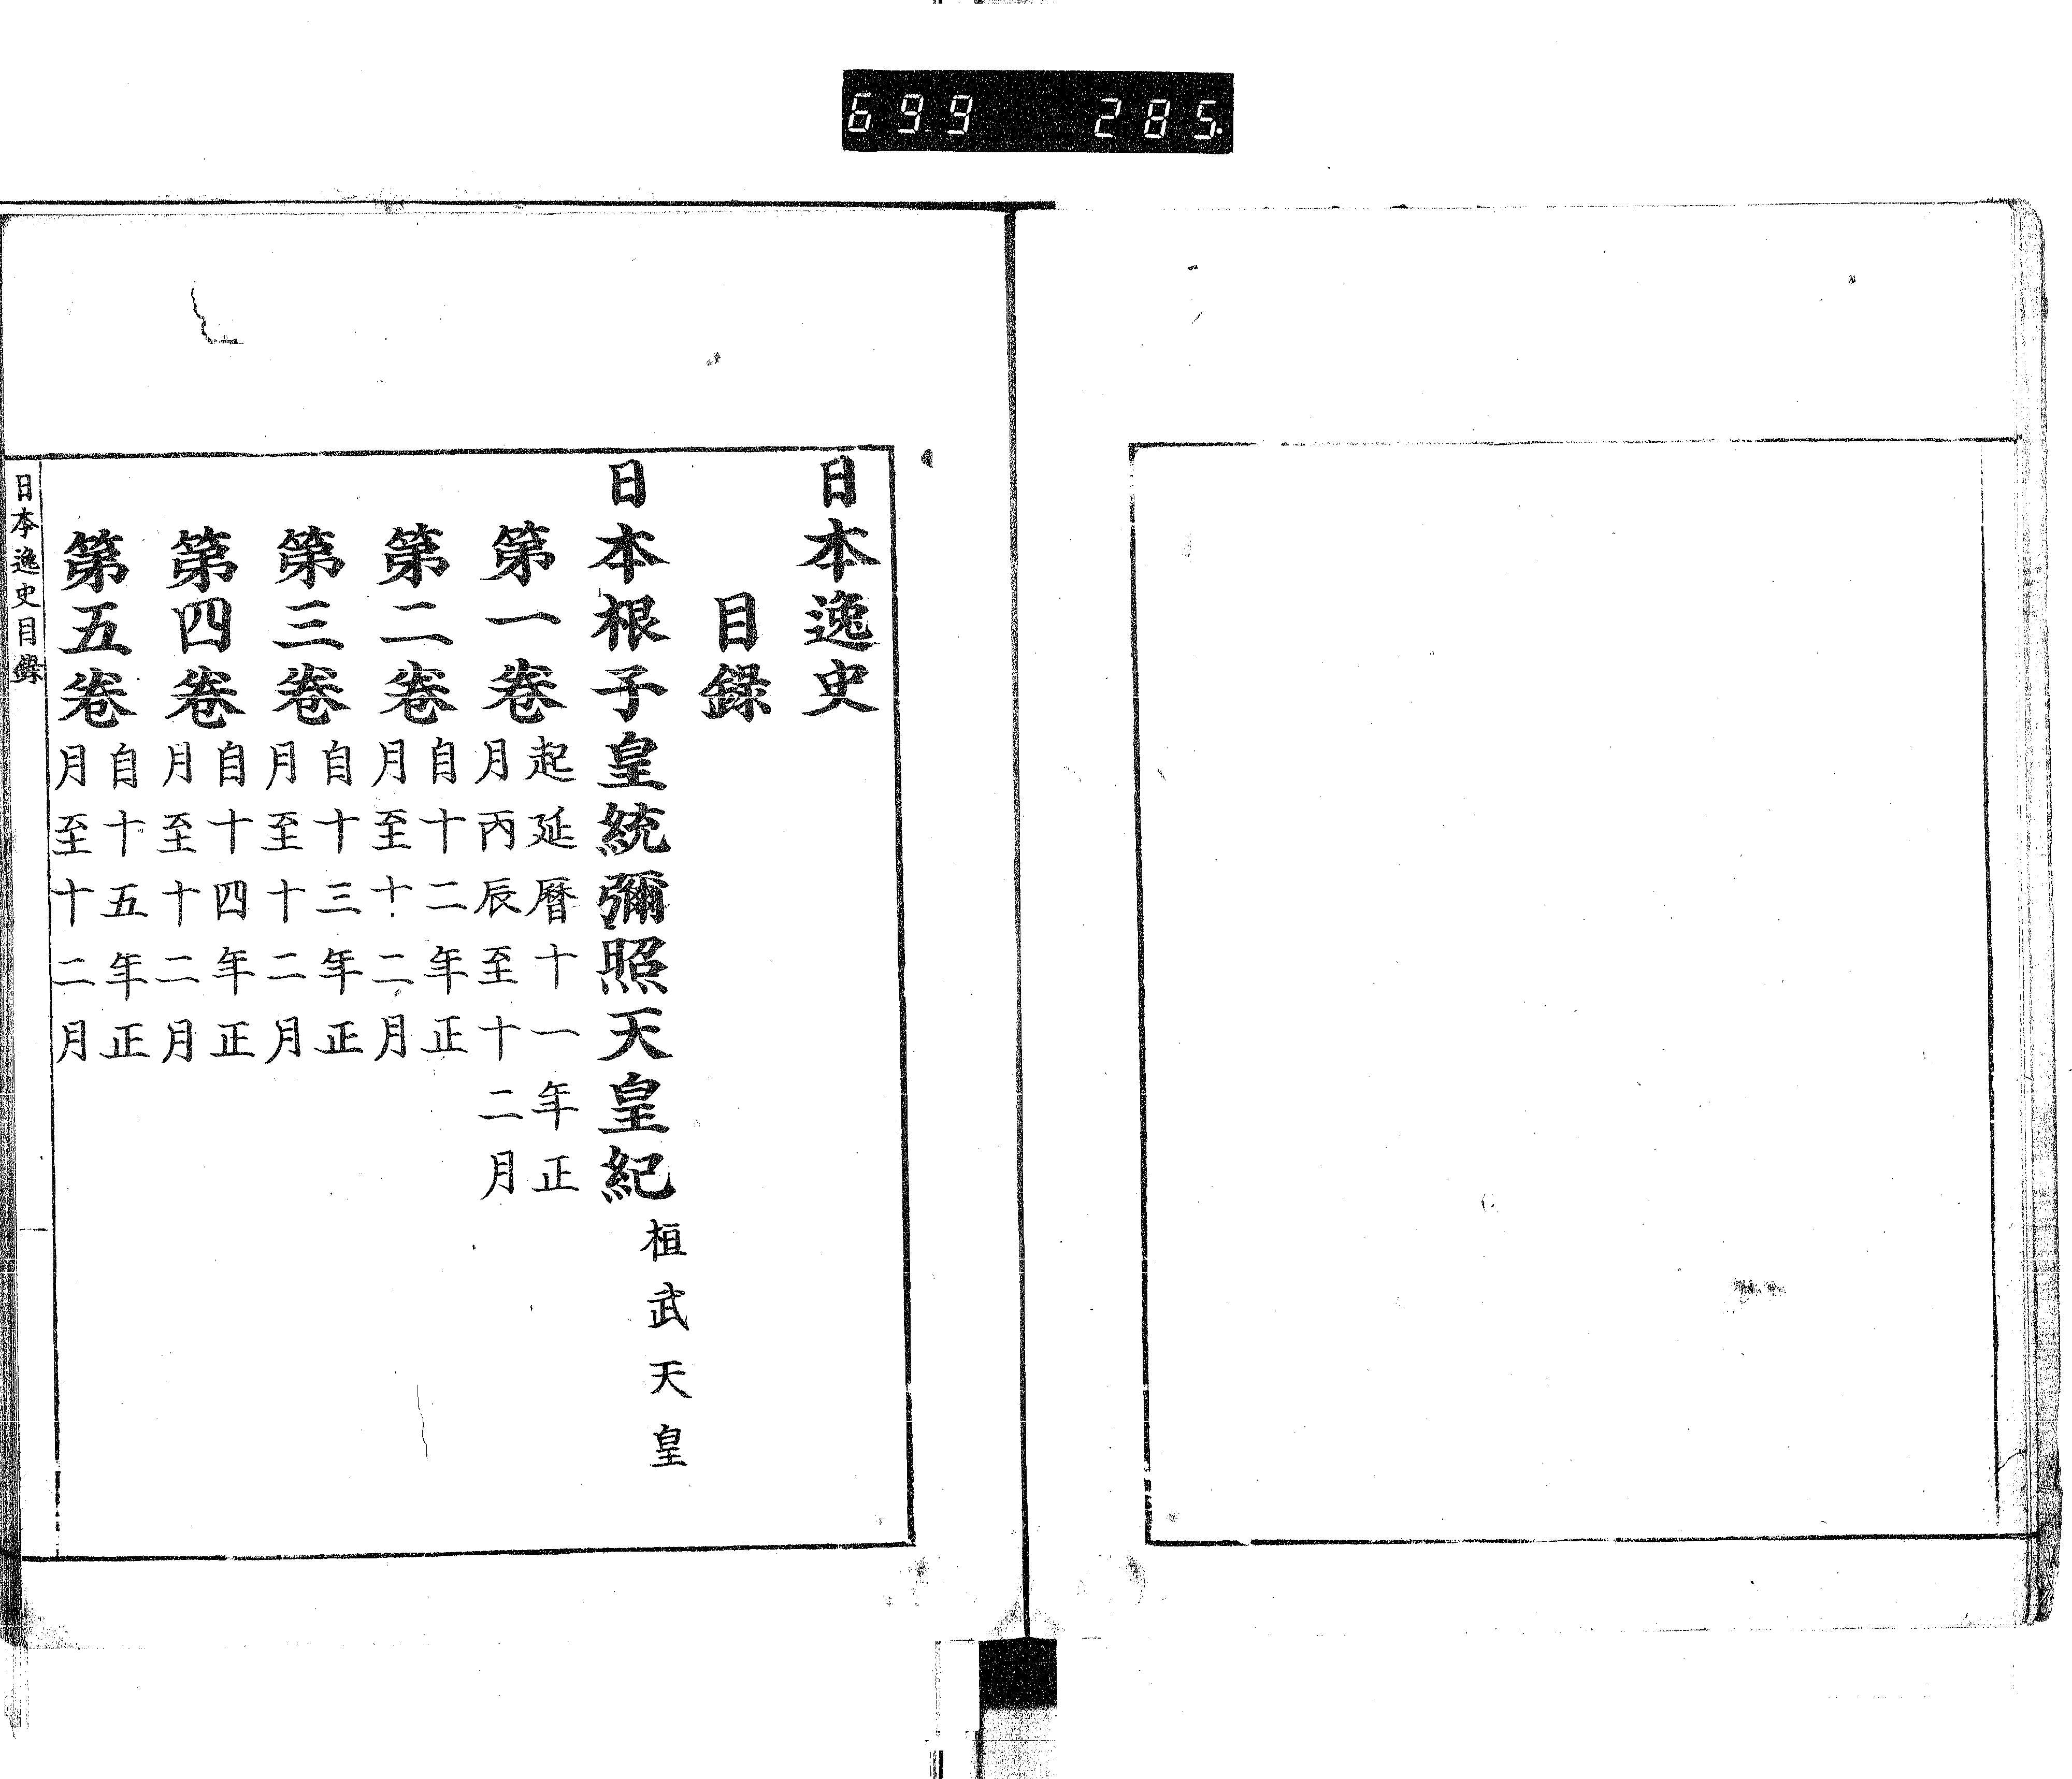 699 285
日本逸史
目錄
日本根子皇統彌照天皇紀 桓武天皇
第一卷 起延曆十一年正
月丙辰至十二月
第二卷 自十二年正
月至十二月
第三卷 自十三年正
月至十二月
第四卷 自十四年正
月至十二月
第五卷 自十五年正
月至十二月
日本逸史目錄
一